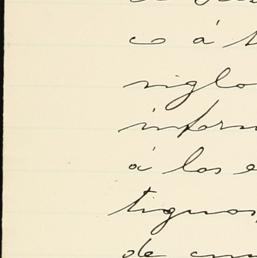 co á
siglo
inform
á los e
tiguos,
de